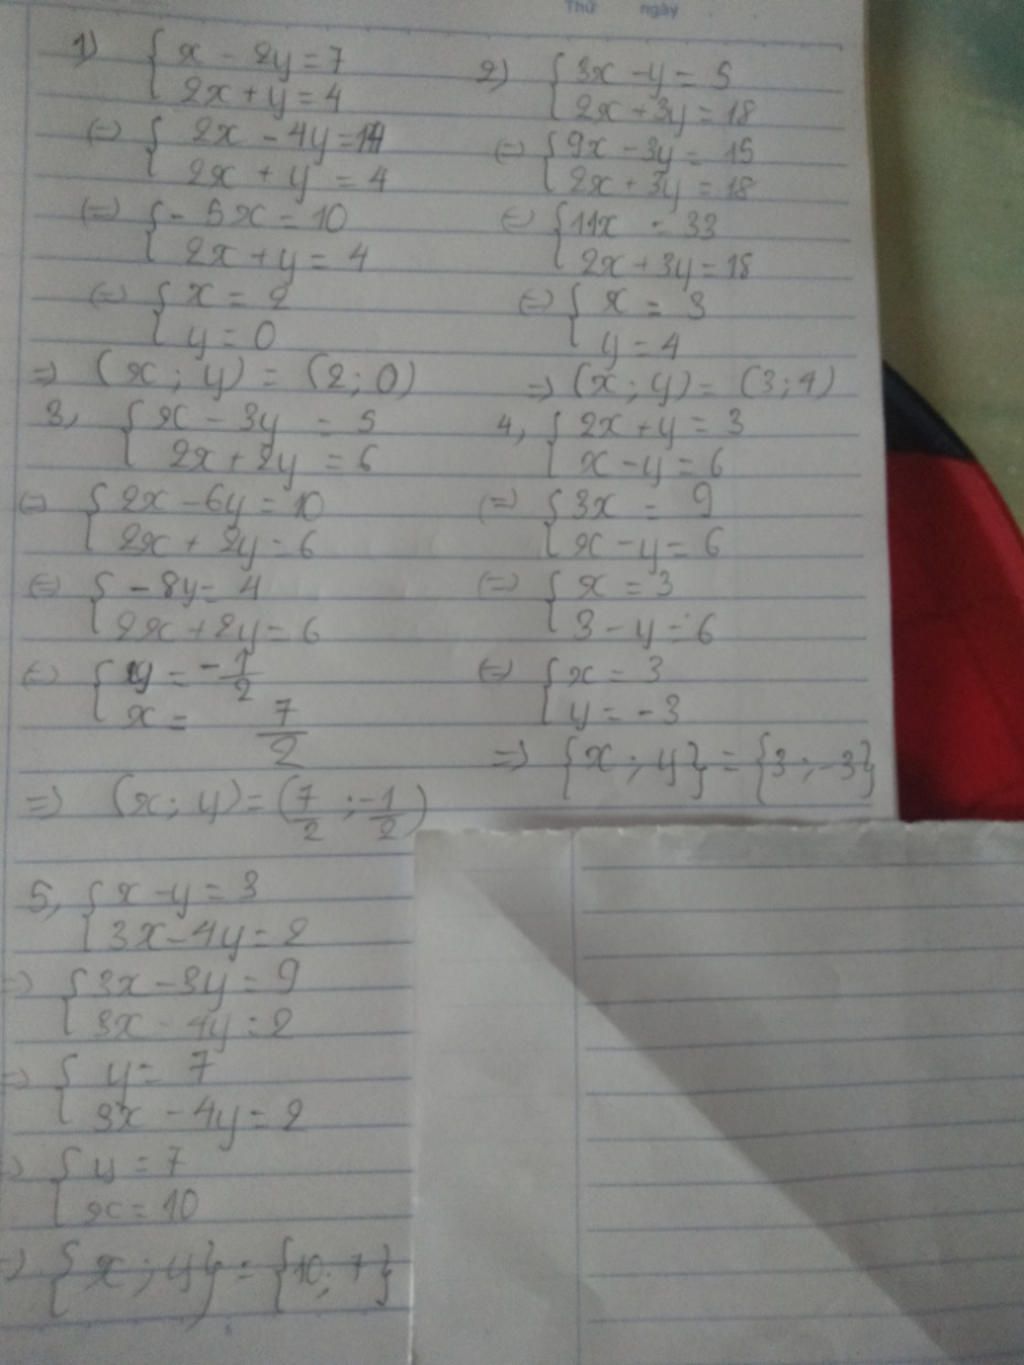 Thứ ngày
1) { x - 2y = 7
2x + y = 4
(=) { 2x - 4y = 14
2x + y = 4
(=) { - 5x = 10
2x + y = 4
(=) { x = 2
y = 0
=> (x ; y) = (2 ; 0)
2) { 3x - y = 5
2x + 3y = 18
(=) { 9x - 3y = 15
2x + 3y = 18
(=) { 11x = 33
2x + 3y = 18
(=) { x = 3
y = 4
=> (x ; y) = (3 ; 4)
3, { x - 3y = 5
2x + 2y = 6
(=) { 2x - 6y = 10
2x + 2y = 6
(=) { - 8y = 4
2x + 2y = 6
(=) { y = - 1/2
x = 7/2
=> (x ; y) = (7/2 ; -1/2)
4, { 2x + y = 3
x - y = 6
(=) { 3x = 9
x - y = 6
(=) { x = 3
3 - y = 6
(=) { x = 3
y = - 3
=> {x ; y} = {3 ; -3}
5, { x - y = 3
3x - 4y = 2
=> { 3x - 3y = 9
3x - 4y = 2
=> { y = 7
3x - 4y = 2
=> { y = 7
x = 10
=> {x ; y} = {10 ; 7}